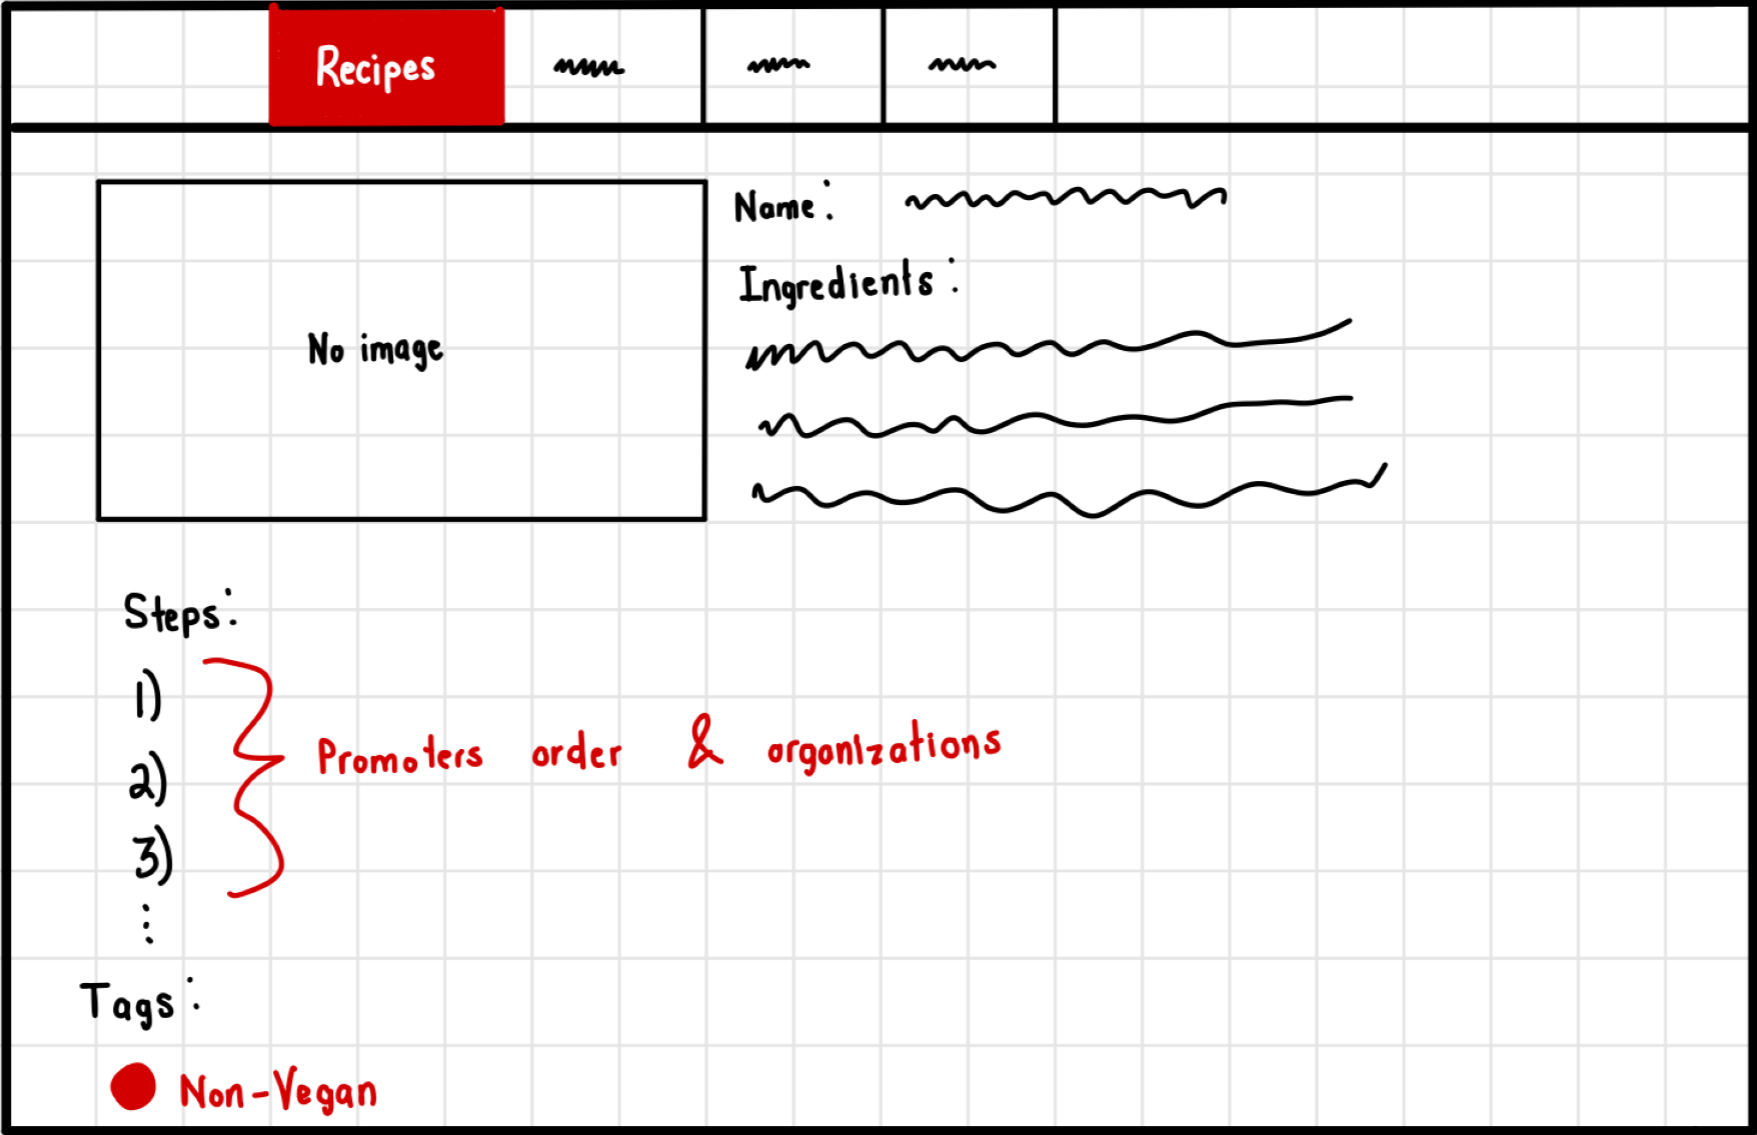 Recipes
Name:
No image
Ingredients:
Steps:
1)
2)
3)
Promoters order & organizations
Tags:
Non-Vegan